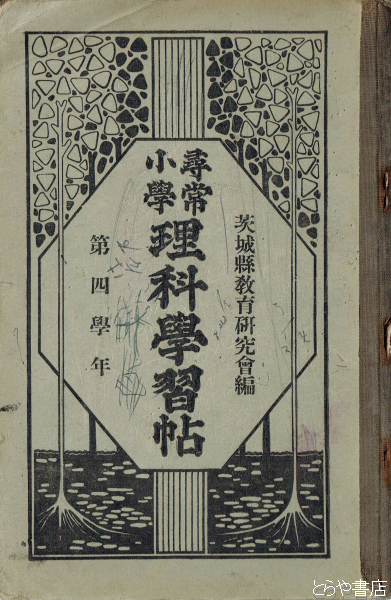 茨城縣教育研究會編
尋常
小學
理科學習帖
第四學年
とらや書店